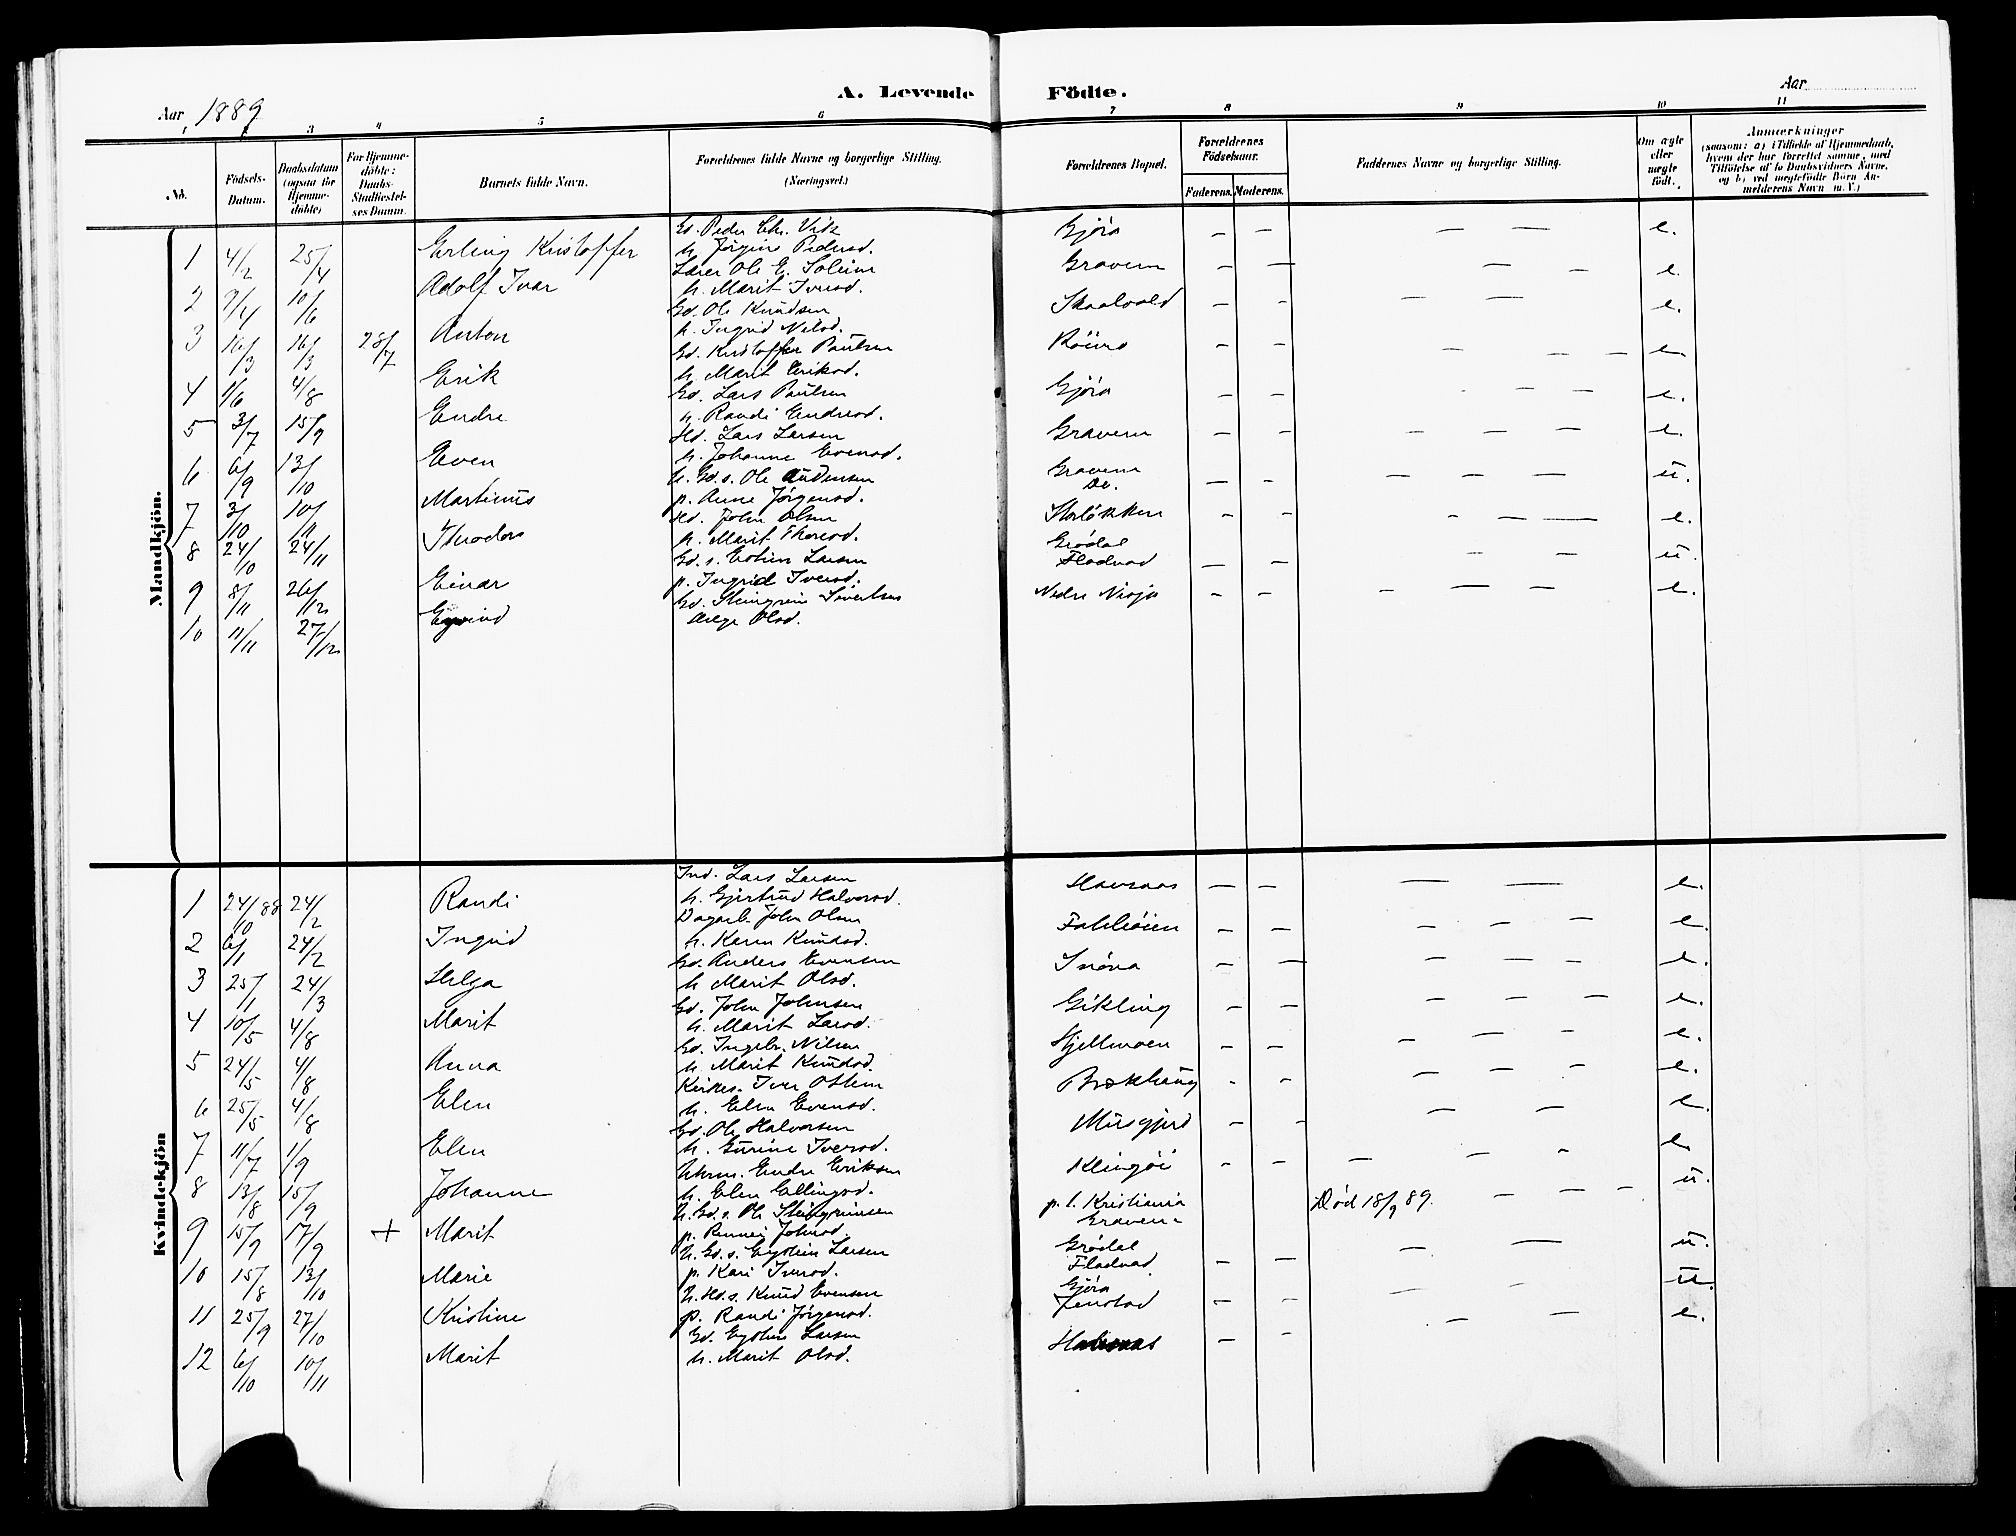 A. Levende Födte.
Aar 1889
Aar
1 2 3 4 5 6 7 8 9 10 11
No.
Födsels-Datum.
Daabsdatum (ogsaa for Hjemmedöbte)
For Hjemmedöbte: Daabs-Stadfæstelses Datum.
Barnets fulde Navn.
Forældrenes fulde Navne og borgerlige Stilling. (Næringsvei.)
Forældrenes Bopæl.
Forældrenes Födselsaar.
Faderens. Moderens.
Faddernes Navne og borgerlige Stilling.
Om ægte eller uægte födt.
Anmærkninger
(saasom: a) i Tilfælde af Hjemmedaab, hvem der har forrettet samme, med Tilföielse af to Daabsvidners Navne, og b) ved uægtefödte Börn Anmelderens Navn m. V.)
Mandkjön.
1 4/2 25/4 Erling Kristoffer Gd. Peder Chr. Vik h. Jørgine Pedersd. Gjöra — — — — e.
2 7/4 10/6 Adolf Ivar Lærer Ole E. Soleim h. Marit Iversd. Gravem — — — — e.
3 16/3 16/3 28/7 Anton Gd. Ole Knudsen h. Ingrid Nilsd. Skaalvold — — — — e.
4 1/6 4/8 Erik Gd. Kristoffer Paulsen h. Marit Eriksd. — — — — — e.
5 3/7 15/9 Endre Gd. Lars Paulsen h. Randi Endresd. Gjöra — — — — e.
6 6/9 13/10 Even Hd. Lars Larsen h. Johanne Evensd. Gravem — — — — — e.
7 3/10 10/11 Martinus U. Gd.s. Ole Andersen p. Anne Jørgensd. Gravem Do. — — — — — u.
8 24/10 24/11 Theodor Hd. John Olsen h. Marit Thoresd. Storløkken — — — — — e.
9 8/11 26/12 Einar Gd.s. Larsen p. Ingrid Iversd. Grødal Fladvad — — — — u.
10 11/11 27/12 Eyvind Gd. Steingrim Sivertsen Olsd. Nedre — — — — — e.
Kvindekjön
1 24/10 88 24/2 Randi Ind. Lars Larsen h. Gjertrud Halvorsd. Havsnaas — — — — e.
2 6/1 24/2 Ingrid Dagarb. John Olsen h. Karen Knudsd. — — — — — e.
3 25/1 24/3 Helga Gd. Anders Evensen h. Marit Olsd. Snöva — — — — — e.
4 10/5 4/8 Marit Gd. John Johnsen h. Marit Larsd. Gikling — — — — — e.
5 24/5 4/8 Anna Gd. Ingebr. Nilsen h. Marit Knudsd. Hjellmoen — — — — — e.
6 25/5 4/8 Elen Kirkes. Iver h. Elen Evensd. Brækhaug — — — — — e.
7 11/7 1/9 Elen Gd. Ole Halvorsen h. Gurine Iversd. Musgjerd — — — — e.
8 13/8 15/9 Johanne Endre Eriksen h. Elen Ellingsd. — — — — — e.
9 15/9 17/9 + Marit U. Gd.s. Ole Steingrimsen p. Johnsd. p. t. Kristiania Gravem Død 18/9 89. — — — u.
10 15/8 13/10 Marie U. Gd.s. Eystein Larsen p. Kari Iversd. Grødal Fladvad — — — — u.
11 25/9 27/10 Kristine U. Hd.s. Knud Evensen p. Randi Jørgensd. Gjöra Jenstad — — — — u.
12 6/10 10/11 Marit Gd. Eystein Larsen h. Marit Olsd. — — — — e.